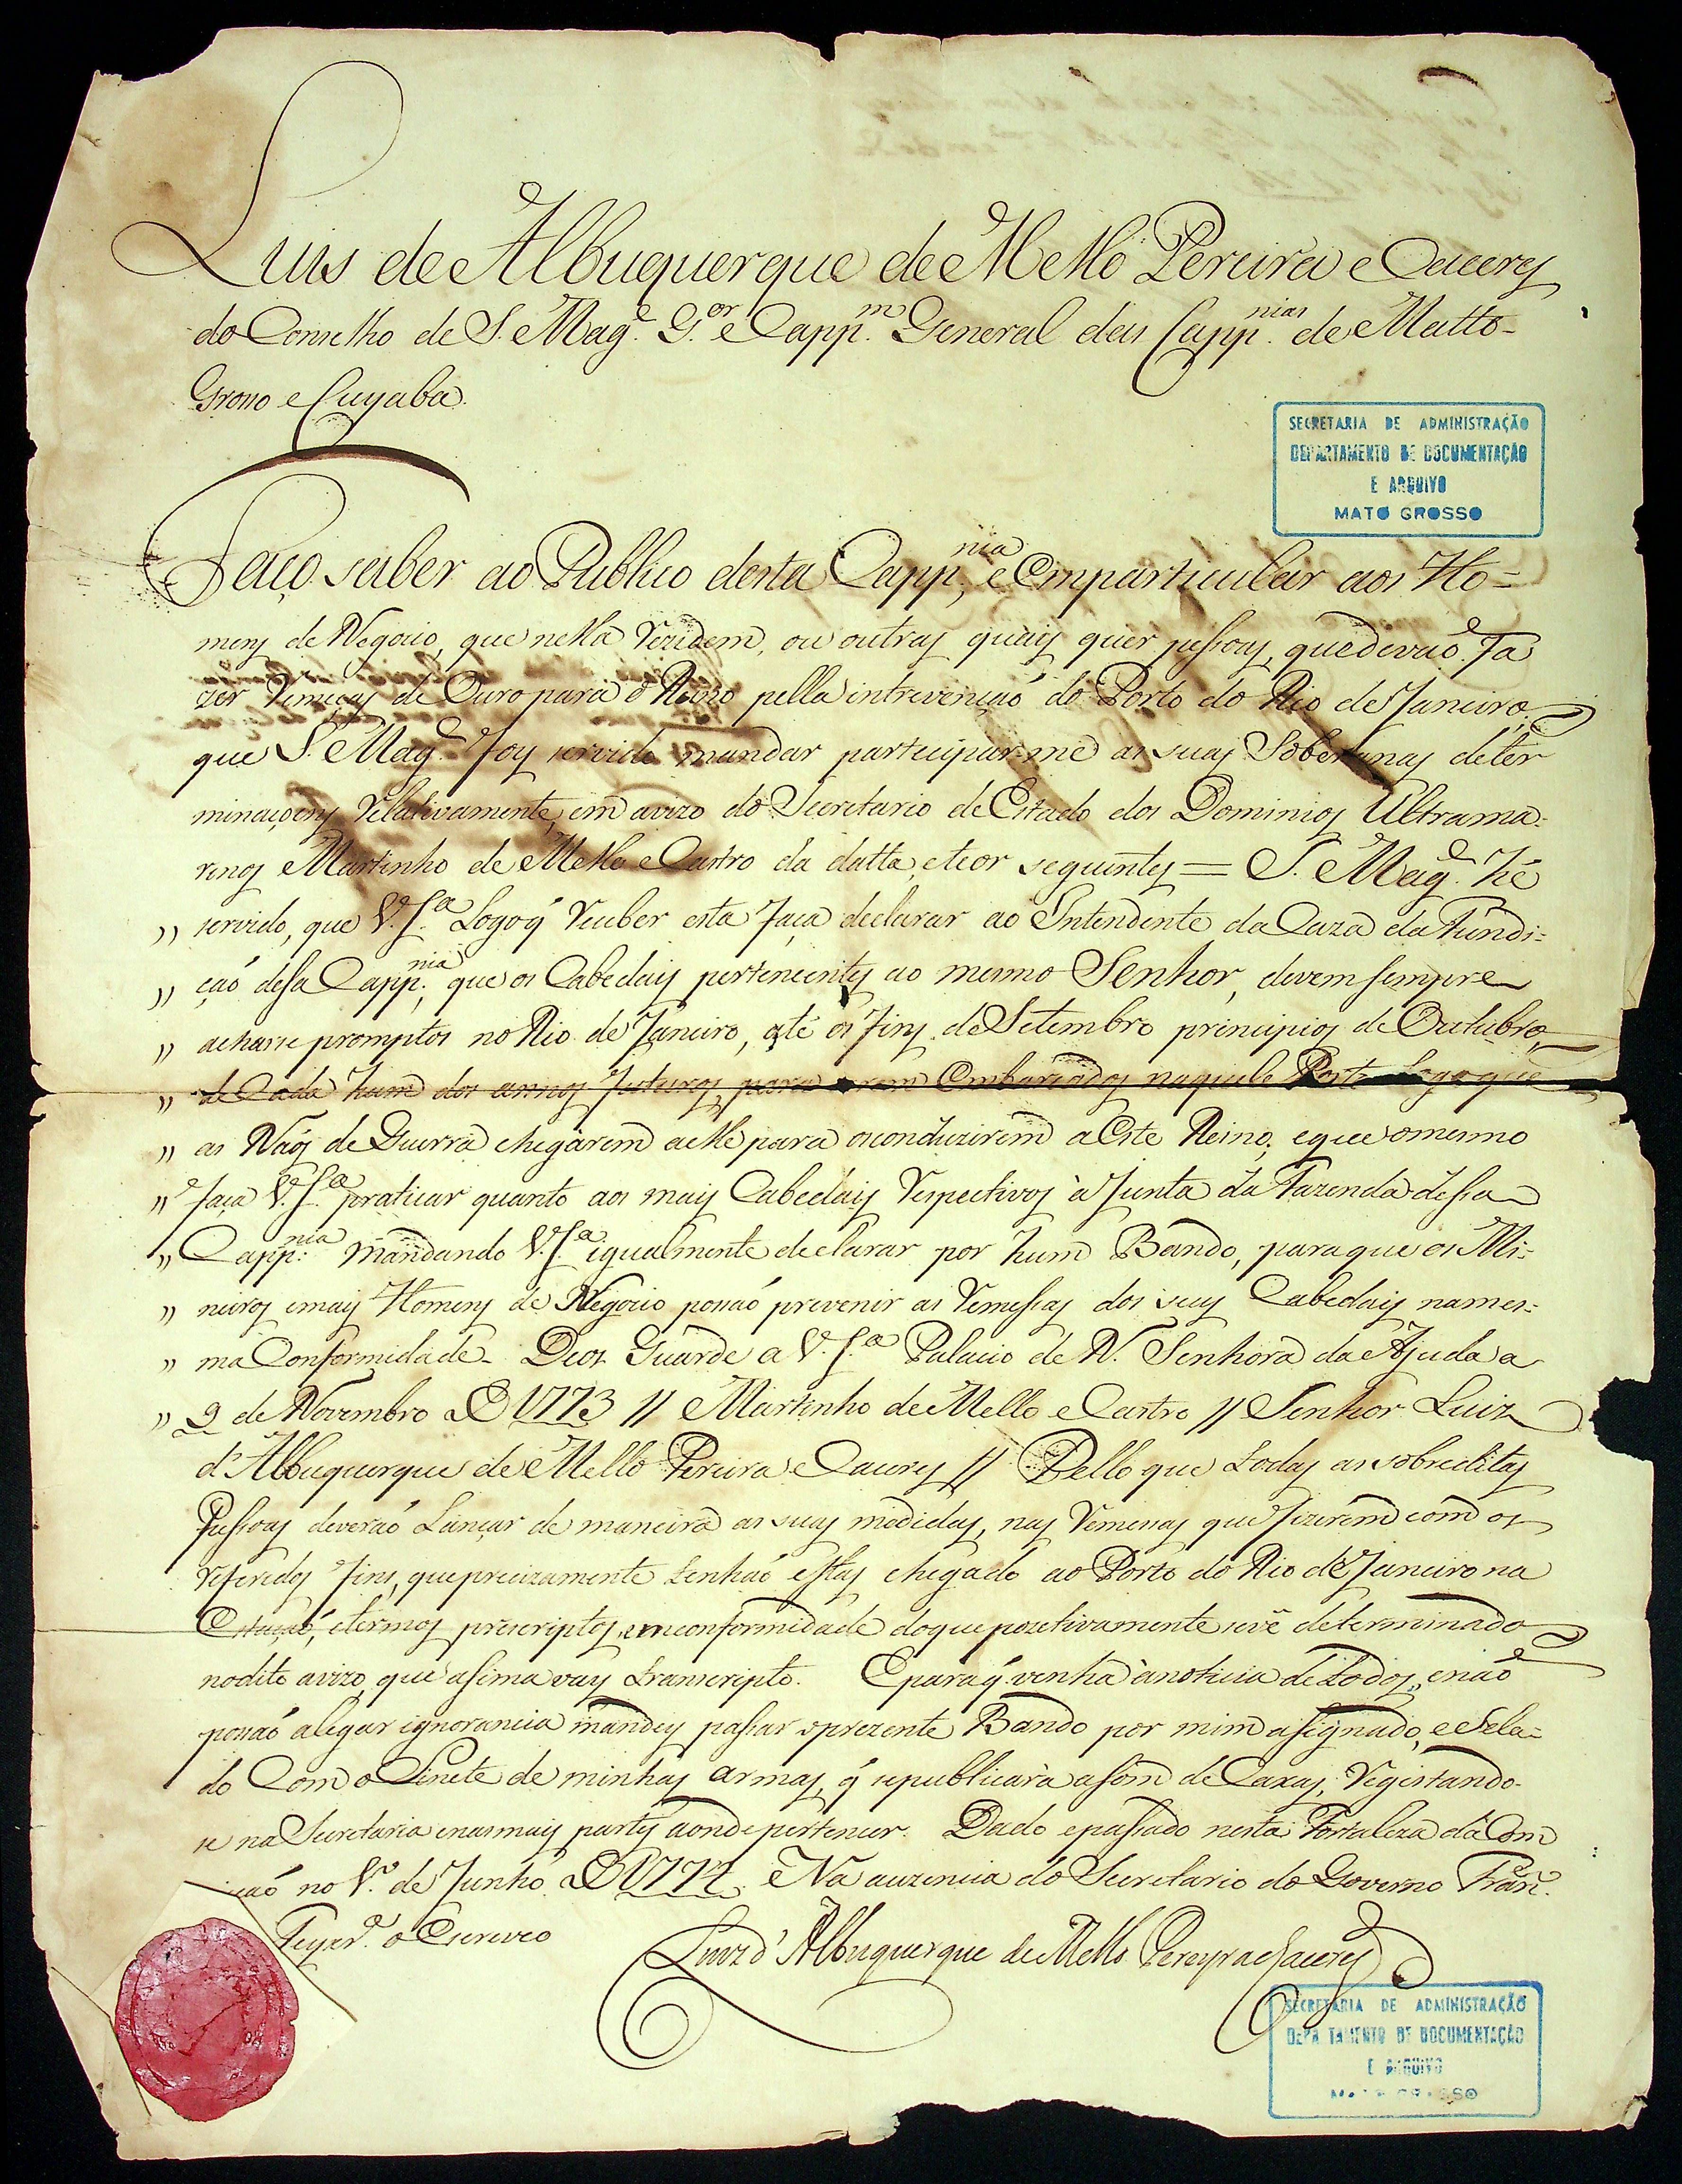 Luis de Albuquerque de Mello Pereira e Caceres
do Conselho de S. Mag.e G.or e Capp.m General das Capp.nias de Matto-
Grosso e Cuyaba.
SECRETARIA DE ADMINISTRAÇÃO
DEPARTAMENTO DE DOCUMENTAÇÃO
E ARQUIVO
MATO GROSSO
Faço saber ao Publico desta Capp.nia, e Emparticular aos Ho=
mens de Negocio, que nella rezidem, ou outras quais quer pessoas, que deverão fa
zer remeças de Ouro para o Reino pella intrevenção do Porto do Rio de Janeiro,
que S. Mag.e foy servido mandar participar-me as suas Soberanas deter
minaçoens relativamente, em avizo do Secretario de Estado dos Dominios Ultrama=
rinos Martinho de Mello e Castro da datta, e teor seguintes = S. Mag.e hé
" servido, que V. S.a Logo q̃ receber esta faça declarar ao Intendente da Caza da Fundi=
" ção desa Capp.nia, que os Cabedais pertencentes ao mesmo Senhor, devem sempre
" acharse promptos no Rio de Janeiro, até os fins de Setembro principios de Outubro,
" de Cada hum dos annos futuros, para serem Embarcados naquele Porto Logo que
" as Náos de Guerra chegarem a elle para os conduzirem a Este Reino; e que o mesmo
" faça V. S.a praticar quanto aos mais Cabedais respectivos à Junta da Fazenda dessa
" Capp.nia: mandando V. S.a igualmente declarar por hum Bando, para que os Mi=
" neiros e mais Homens de Negocio possaõ prevenir as remessas dos seus Cabedais na mes=
" ma Conformidade. Deos Guarde a V. S.a Palacio de N. Senhora da Ajuda a
" 9 de Novembro D 1773 // Martinho de Mello e Castro // Senhor Luiz
d'Albuquerque de Mello Pereira e Caceres // Pello que todas as sobreditas
Pessoas deveraõ Lançar de maneira as suas medidas, nas remessas que fizerem com os
referidos fins, que precizamente tenhaõ ellas chegado ao Porto do Rio de Janeiro na
Estaçaõ, e termos prescriptos, em conformidade do que pozetivamente se vê determinado
no dito avizo, que asima vay transcripto. E para q̃ venha à noticia de todos, e naõ
possaõ alegar ignorancia mandey passar o prezente Bando por mim asignado, e Sela=
do Com o Sinete de minhas armas, q̃ se publicará a som de Caxas, registando-
se na Secretaria e nas mais partes aonde pertencer. Dado e passado nesta Fortaleza da Con
ceiçaõ no 1.º de Junho D 1774. E Na auzencia do Secretario do Governo Fran.co
o Escreveo
Luiz d'Albuquerque de Mello Pereyra e Caceres
SECRETARIA DE ADMINISTRAÇÃO
DEPARTAMENTO DE DOCUMENTAÇÃO
E ARQUIVO
MATO GROSSO